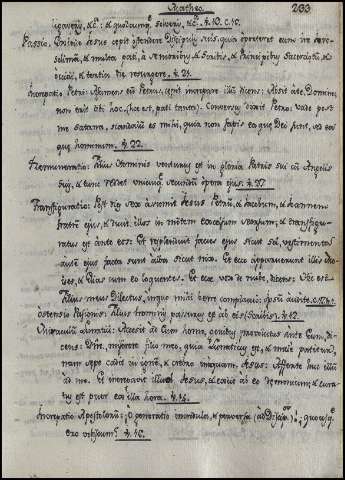 Matheo. 233
ligaveris, &c. & quodcumque solveris, &c. ꝟ. 10. c. 16.
Passio. Exinde Jesus cepit ostendere Discipulis suis, quia oporteret eum ire Jero-
solimã, & multa pati, a Senioribus & Scribis, & Principibus Sacerdotũ &
occidi, & tertia die resurgere. ꝟ. 21.
Increpatio. Petrus Petrus cepit increpare illũ dicens: Absit a te Domine,
non erit tibi hoc. (hoc est, pati tanta). Conversus dixit Petro: Vade post
me Satana, scandalũ es mihi, quia non sapis ea que Dei sunt, sed ea
que hominum. ꝟ. 22.
Remuneratio: Filius Hominis venturus est in gloria Patris sui cũ Angelis
suis, & tunc reddet unicuique secundũ opera ejus. ꝟ. 27
Transfiguratio: Post dies sex assumit Jesus Petrũ, & Jacobum, & Joannem
fratrẽ ejus, & ducit illos in mõtem excelsum seorsum; & transfigu-
ratus est ante eos. Et resplenduit facies ejus sicut sol, vestimenta
autẽ ejus facta sunt alba sicut nix. Et ecce apparuerunt illis Mo-
ises, & Elias cum eo loquentes. Et ecce vox de nube, dicens: Hic est
Filius meus Dilectus, in quo mihi bene complacui: ipsũ audite. c. 17. ꝟ. 1.
ostensio Passionis: Filius hominis passurus est ab eis (Scribis). ꝟ. 12.
Miraculũ Lunatici: Accessit ad Eum homo, genibus provolutus ante Eum, di-
cens: Dñe, miserere filio meo, quia lunaticus est, & male patitur:
nam sepe cadit in ignẽ, & crebro in aquam. Jesus: Afferte huc illũ
ad me. Et increpavit illum Jesus, & exiit ab eo Demonium; & cura-
tus est puer ex illa hora. ꝟ. 14.
Increpatio Apostolorũ: O generatio incredula, & perversa (ad Discip.), quousque
ero vobiscum? ꝟ. 16.